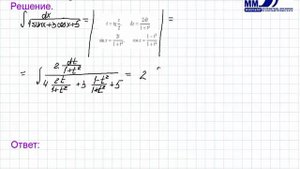 Решение.
ММ
∫ dx / (4 sin x + 3 cos x + 5) = | t = tg x/2 dx = 2dt/(1+t²) sin x = 2t/(1+t²) cos x = (1-t²)/(1+t²) | =
= ∫ (2 dt/(1+t²)) / (4 2t/(1+t²) + 3 (1-t²)/(1+t²) + 5) = 2
Ответ: